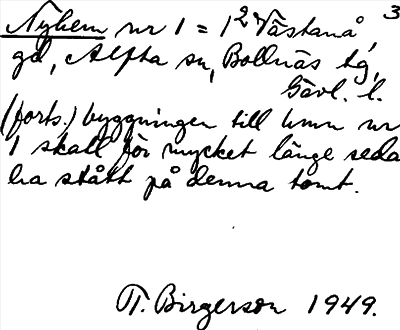 Nyhem nr 1 = 1² Västanå 3
gd, Alfta sn, Bollnäs tg,
Gävl. l.
(forts.) byggningen till hmn nr
1 skall för mycket länge seda
ha stått på denna tomt.
T. Birgerson 1949.